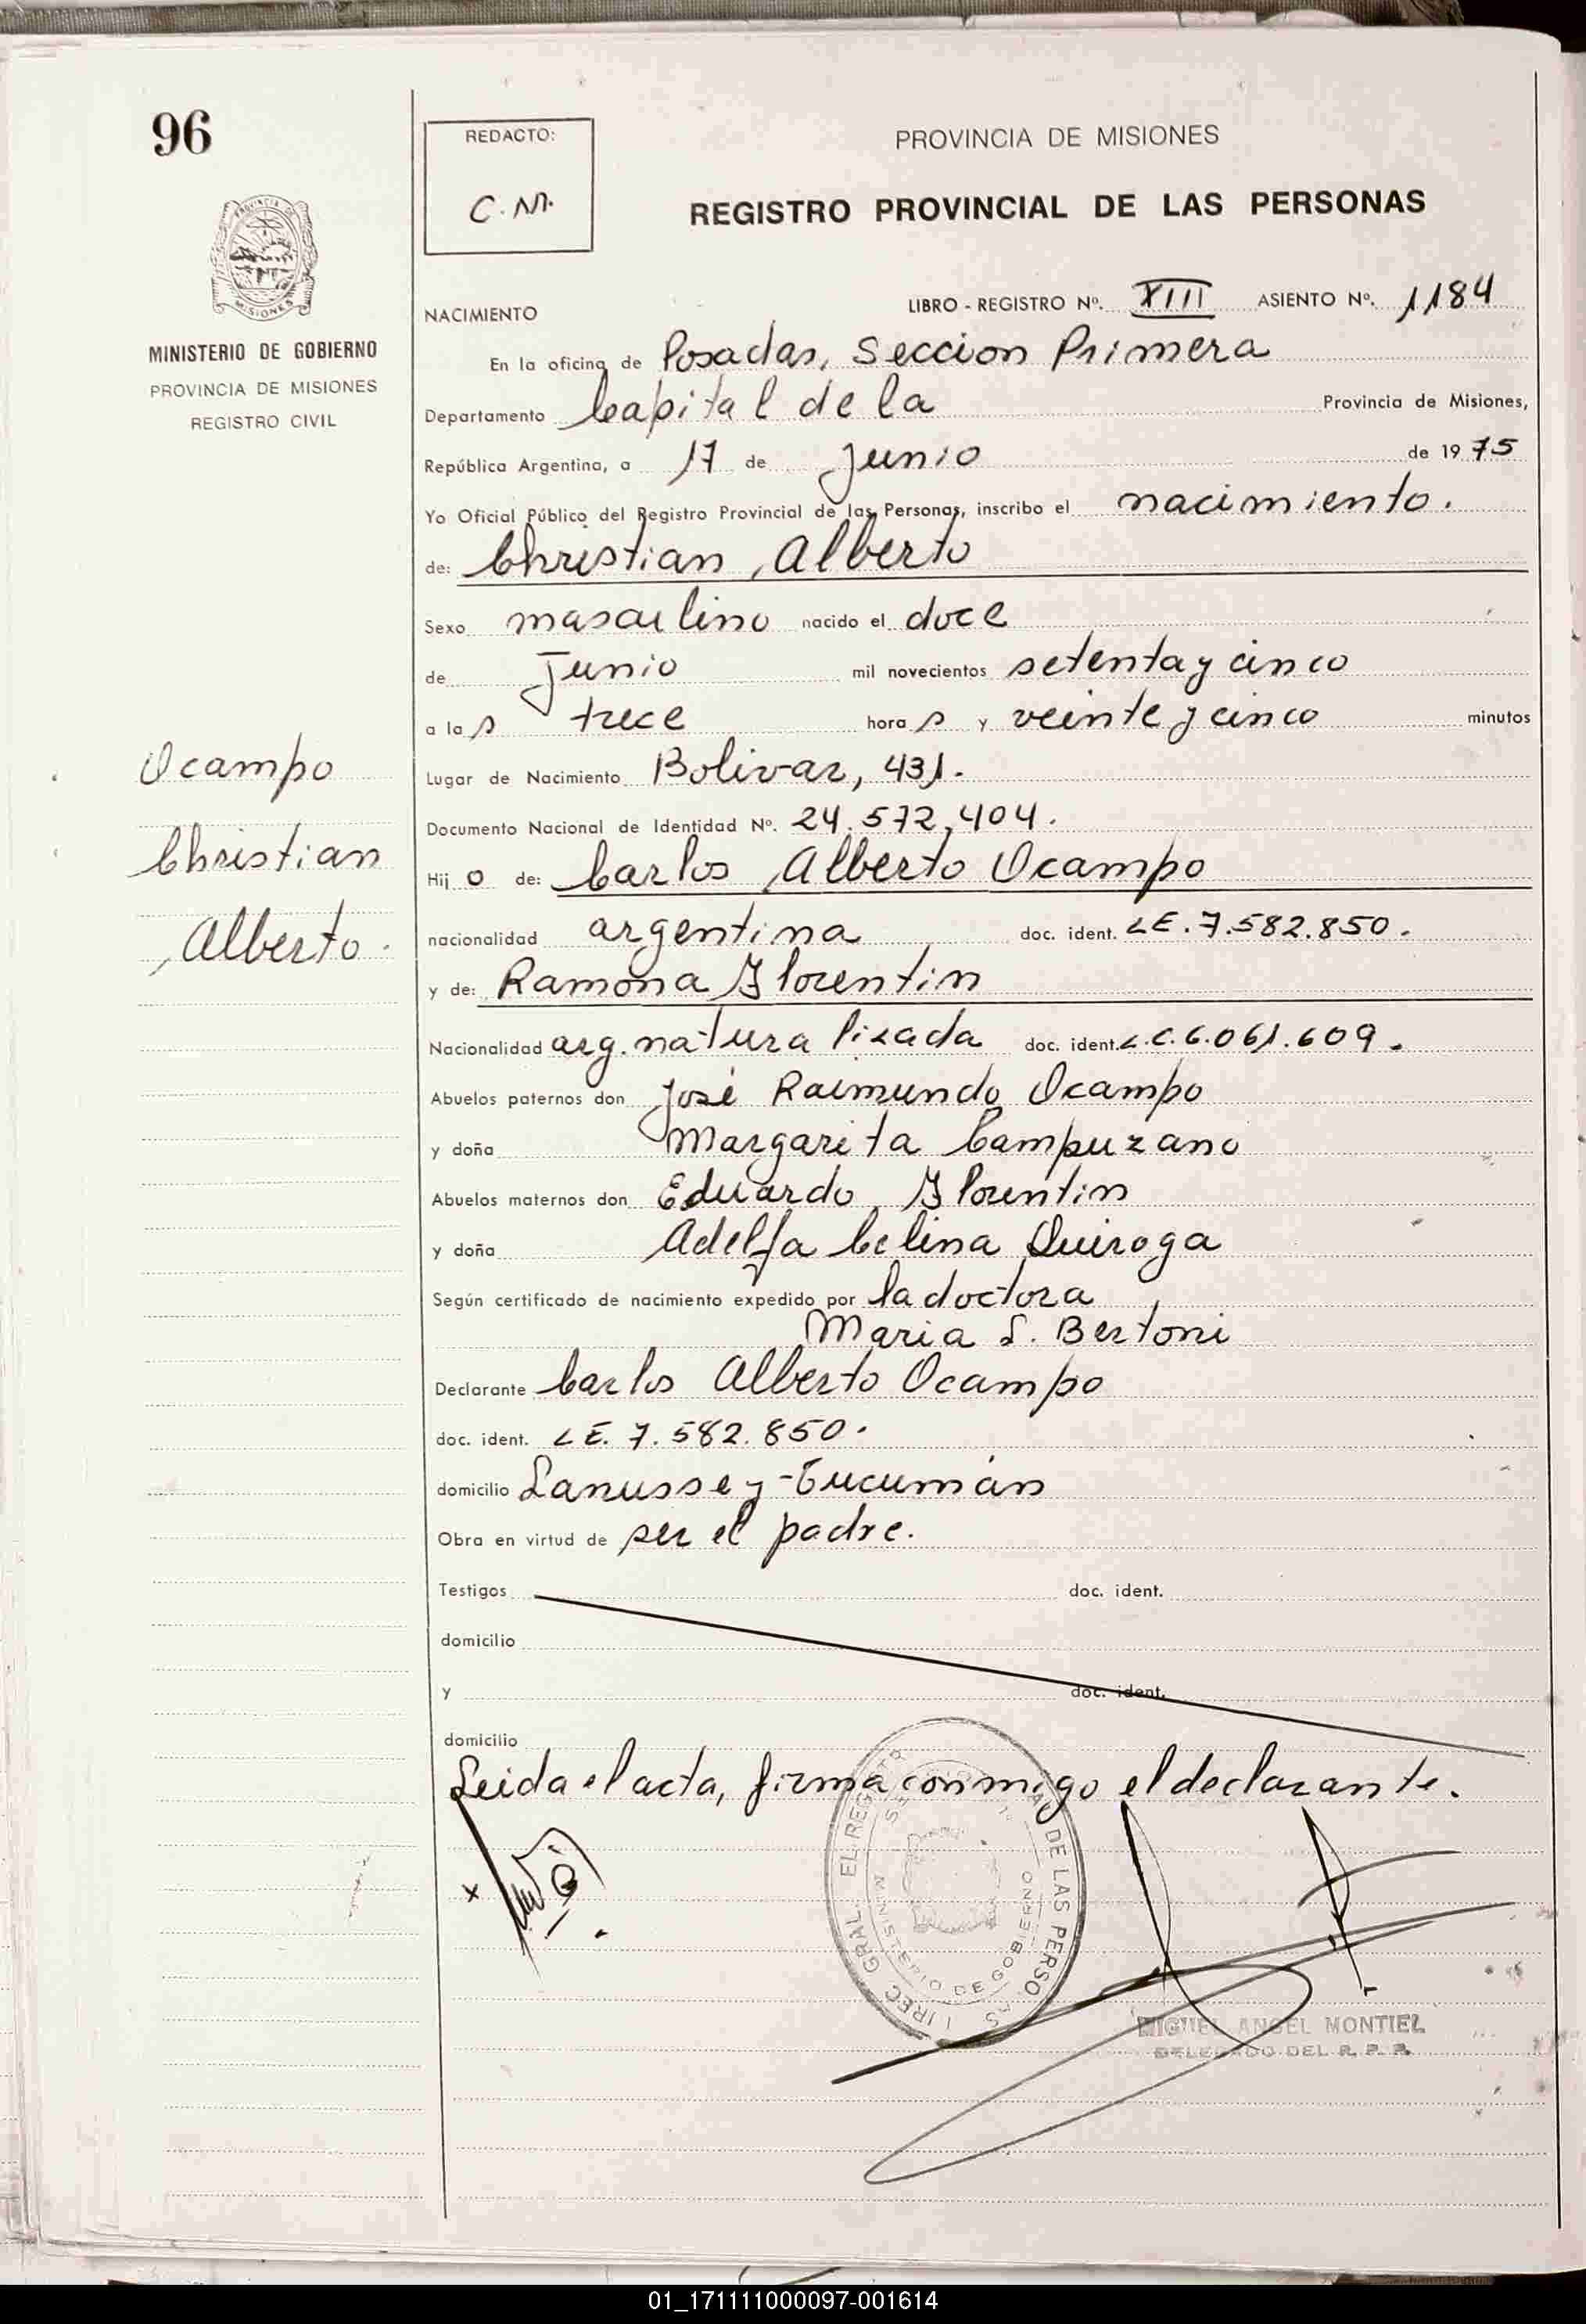 96
REDACTO:
C. M.
PROVINCIA DE MISIONES
REGISTRO PROVINCIAL DE LAS PERSONAS
PROVINCIA DE MISIONES
MINISTERIO DE GOBIERNO
PROVINCIA DE MISIONES
REGISTRO CIVIL
NACIMIENTO
LIBRO - REGISTRO Nº. XIII ASIENTO Nº. 1184
En la oficina de Posadas, Seccion Primera
Departamento Capital de la Provincia de Misiones,
República Argentina, a 17 de Junio de 1975
Yo Oficial Público del Registro Provincial de las Personas, inscribo el nacimiento.
de: Christian Alberto
Sexo masculino nacido el doce
de Junio mil novecientos setenta y cinco
a las trece horas y veinte y cinco minutos
Lugar de Nacimiento Bolivar, 431.
Documento Nacional de Identidad Nº. 24.572,404.
Hijo de: Carlos Alberto Ocampo
nacionalidad argentina doc. ident. LE. 7.582.850.
y de: Ramona Florentin
Nacionalidad arg. naturalizada doc. ident. L.C. 6.061.609.
Abuelos paternos don José Raimundo Ocampo
y doña Margarita Campuzano
Abuelos maternos don Eduardo Florentin
y doña Adelfa Celina Quiroga
Según certificado de nacimiento expedido por la doctora
Maria S. Bertoni
Declarante Carlos Alberto Ocampo
doc. ident. LE. 7.582.850.
domicilio Lanusse y Tucumán
Obra en virtud de ser el padre.
Testigos doc. ident.
domicilio
y doc. ident.
domicilio
Leida el acta, firma conmigo el declarante.
Ocampo
Christian
Alberto.
GRAL. EL REGISTRO DE LAS PERSO AS
MINISTERIO DE GOBIERNO
MIGUEL ANGEL MONTIEL
DELEGADO DEL R. P. P.
01_171111000097-001614